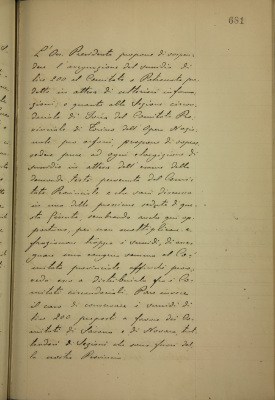 681
L'On. Presidente propone di sospen-
dere l'assegnazione del sussidio di
lire 200 al Comitato o Patronato pre-
detto in attesa di ulteriori informa-
zioni; e quanto alla Sezione circon-
dariale di Torino del Comitato Pro-
vinciale di Torino dell'Opera Nazio-
nale pro orfani, propone di sopras-
sedere pure ad ogni elargizione di
sussidio in attesa dell'esame della
domanda testé pervenuta dal Comi-
tato Provinciale e che sarà discussa
in una delle prossime sedute di que-
sta Giunta, sembrando anche qui op-
portuno, per non moltiplicare e
frazionare troppo i sussidi, di asse-
gnare una congrua somma al Co-
mitato provinciale affinché prov-
veda esso a distribuirla fra i Co-
mitati circondariali. Pare invece
il caso di concedere i sussidi di
lire 200 proposti a favore dei Co-
mitati di Savona e di Novara, trat-
tandosi di Sezioni che sono fuori del-
la nostra Provincia